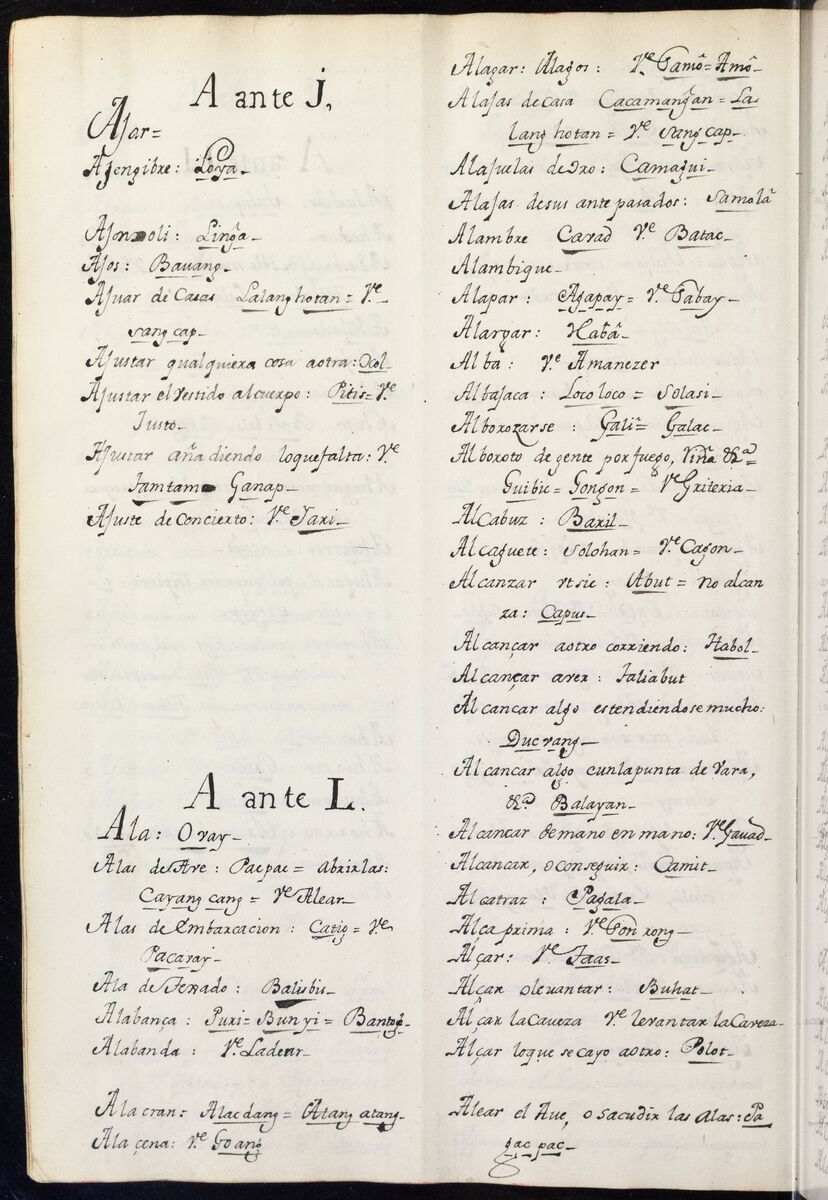 A ante j,
Ajar=
Ajengibre: Loya-
Ajonjoli: Linga-
Ajos: Bauang-
Ajuar de Casas Lalang hotan= Vᵉ
sang cap-
Ajustar qualquiera cosa aotra: Ocol-
Ajustar el vestido alcuerpo: Pitis= Vᵉ
Justo-
Ajustar añadiendo loquefalta: Vᵉ
Tamtam Ganap-
Ajuste de Concierto: Vᵉ Tari-
A ante L.
Ala: Ovay-
Alas de Ave: Pacpac= abrirlas:
Cayang cang= Vᵉ Alear-
Alas de Embarcacion: Catig= Vᵉ
Pacaray-
Ala de Texado: Balisbis-
Alabança: Puri= Bunyi= Bantog-
Alabanda: Vᵉ Ladear-
Alacran: Alacdang= Atang atang-
Alaçena: Vᵉ Goang
Alagar: Alagos: Vᵉ Tamô= Amô-
Alajas de casa Cacamangan= La
lang hotan= Vᵉ sang cap-
Alajuelas de Oro: Camagui-
Alajas desus ante pasados: Samolâ
Alambre Carad Vᵉ Batac-
Alambique-
Alapar: Agapay= Vᵉ Tabay-
Alargar: Habâ-
Alba: Vᵉ Amanezer
Albajaca: Locoloco= Solasi-
Alborozarse: Gali= Galac-
Alboroto de gente porfuego, riña &ᵃ=
Guibic= Gongon= Vᵉ Griteria-
Alcabuz: Baril-
Alcaguete: Solohan= Vᵉ Cagon-
Alcanzar vtsic: Abut= no alcan
za: Capus-
Alcançar aotro corriendo: Habol-
Alcançar aver: Taliabut
Alcancar algo estendiendose mucho:
Ducvang-
Alcancar algo cunlapunta de vara,
&ᵃ Balayan-
Alcancar de mano en mano: Vᵉ Gauad-
Alcancar, o conseguir: Camit-
Alcatraz: Pagala-
Alçaprima: Vᵉ Ponrong-
Alçar: Vᵉ Taas-
Alçar olevantar: Buhat-
Alçar laCaveza Vᵉ levantar laCaveza-
Alçar loque se cayo aotro: Polot-
Alear el Ave, o sacudir las alas: Pa
gac pac-